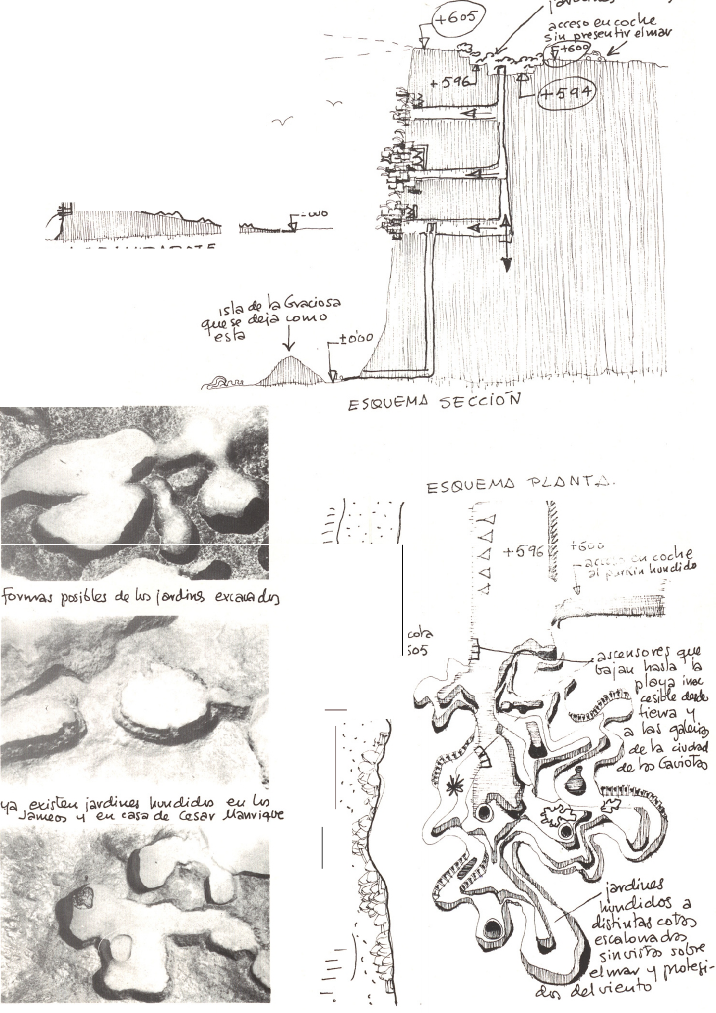 +605
acceso en coche
sin presentir el mar
+600
+596
+594
isla de la Graciosa
que se deja como
esta
±0'00
ESQUEMA SECCIÓN
formas posibles de los jardines excavados
ya existen jardines hundidos en los
Jameos y en casa de Cesar Manrique
ESQUEMA PLANTA.
+596
+600
acceso en coche
al parkin hundido
cota
605
ascensores que
bajan hasta la
playa inac
cesible desde
tierra y
a las galerias
de la ciudad
de las Gaviotas
jardines
hundidos a
distintas cotas
escalonadas
sin vistas sobre
el mar y protegi-
dos del viento